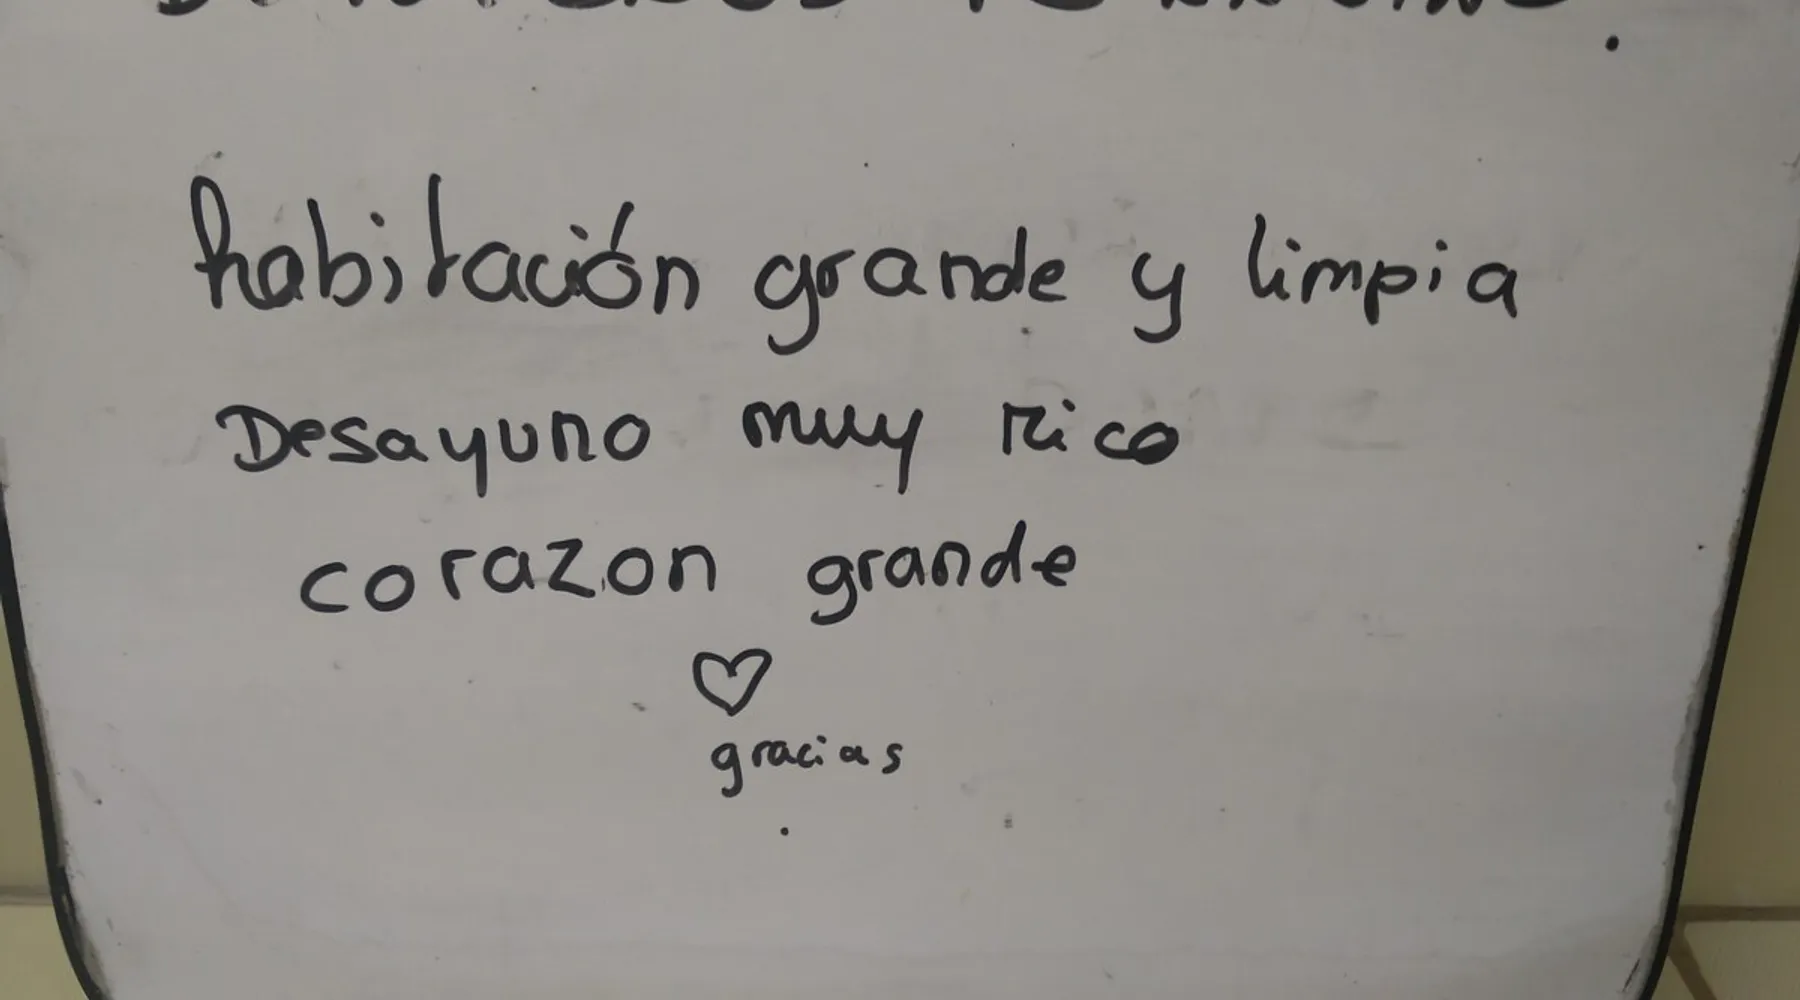 habitación grande y limpia
Desayuno muy Rico
corazon grande
gracias